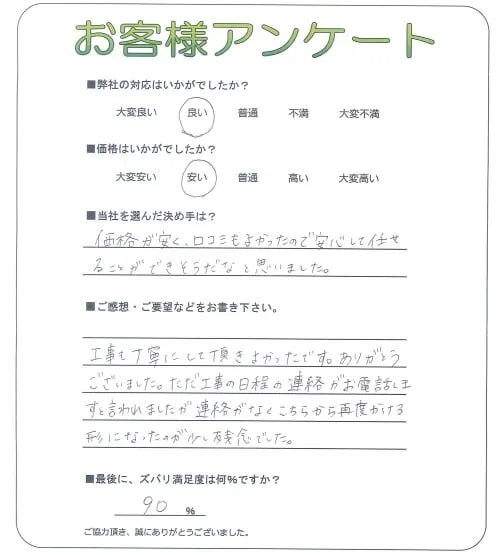 お客様アンケート
■弊社の対応はいかがでしたか？
大変良い 良い 普通 不満 大変不満
■価格はいかがでしたか？
大変安い 安い 普通 高い 大変高い
■当社を選んだ決め手は？
価格が安く、口コミもよかったので安心して任せ
ることができそうだなと思いました。
■ご感想・ご要望などをお書き下さい。
工事も丁寧にして頂きよかったです。ありがとう
ございました。ただ工事の日程の連絡がお電話しま
すと言われましたが連絡がなくこちらから再度かける
形になったのが少し残念でした。
■最後に、ズバリ満足度は何％ですか？
90 ％
ご協力頂き、誠にありがとうございました。